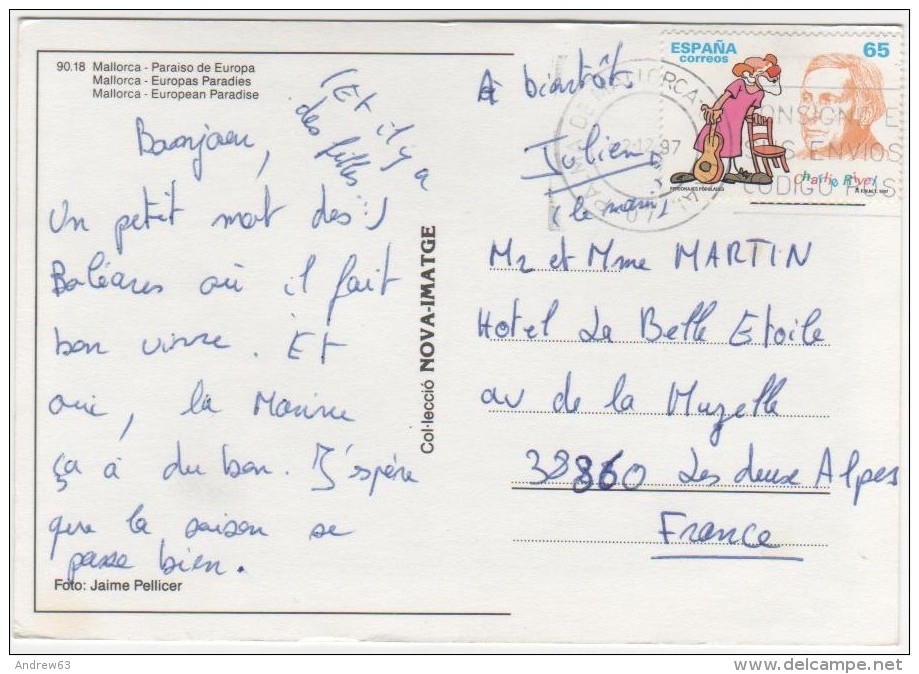 90.18 Mallorca - Paraiso de Europa
Mallorca - Europas Paradies
Mallorca - European Paradise
Bonjour,
(Et il y a
des filles
Un petit mot des :)
Baléares où il fait
bon vivre. Et
oui, la Marine
ça à du bon. J'espère
que la saison se
passe bien.
Foto: Jaime Pellicer
Col·lecció NOVA-IMATGE
A bientôt
Julien
(le marin)
Mr et Mme MARTIN
Hotel La Belle Etoile
av de la Muzelle
38860 Les deux Alpes
France
ESPAÑA
correos
65
Charlie Rivel
PERSONAJES POPULARES
MALLORCA
12 97
CONSIGNE E
SUS ENVIOS
CODIGO POS
Andrew63
www.delcampe.net